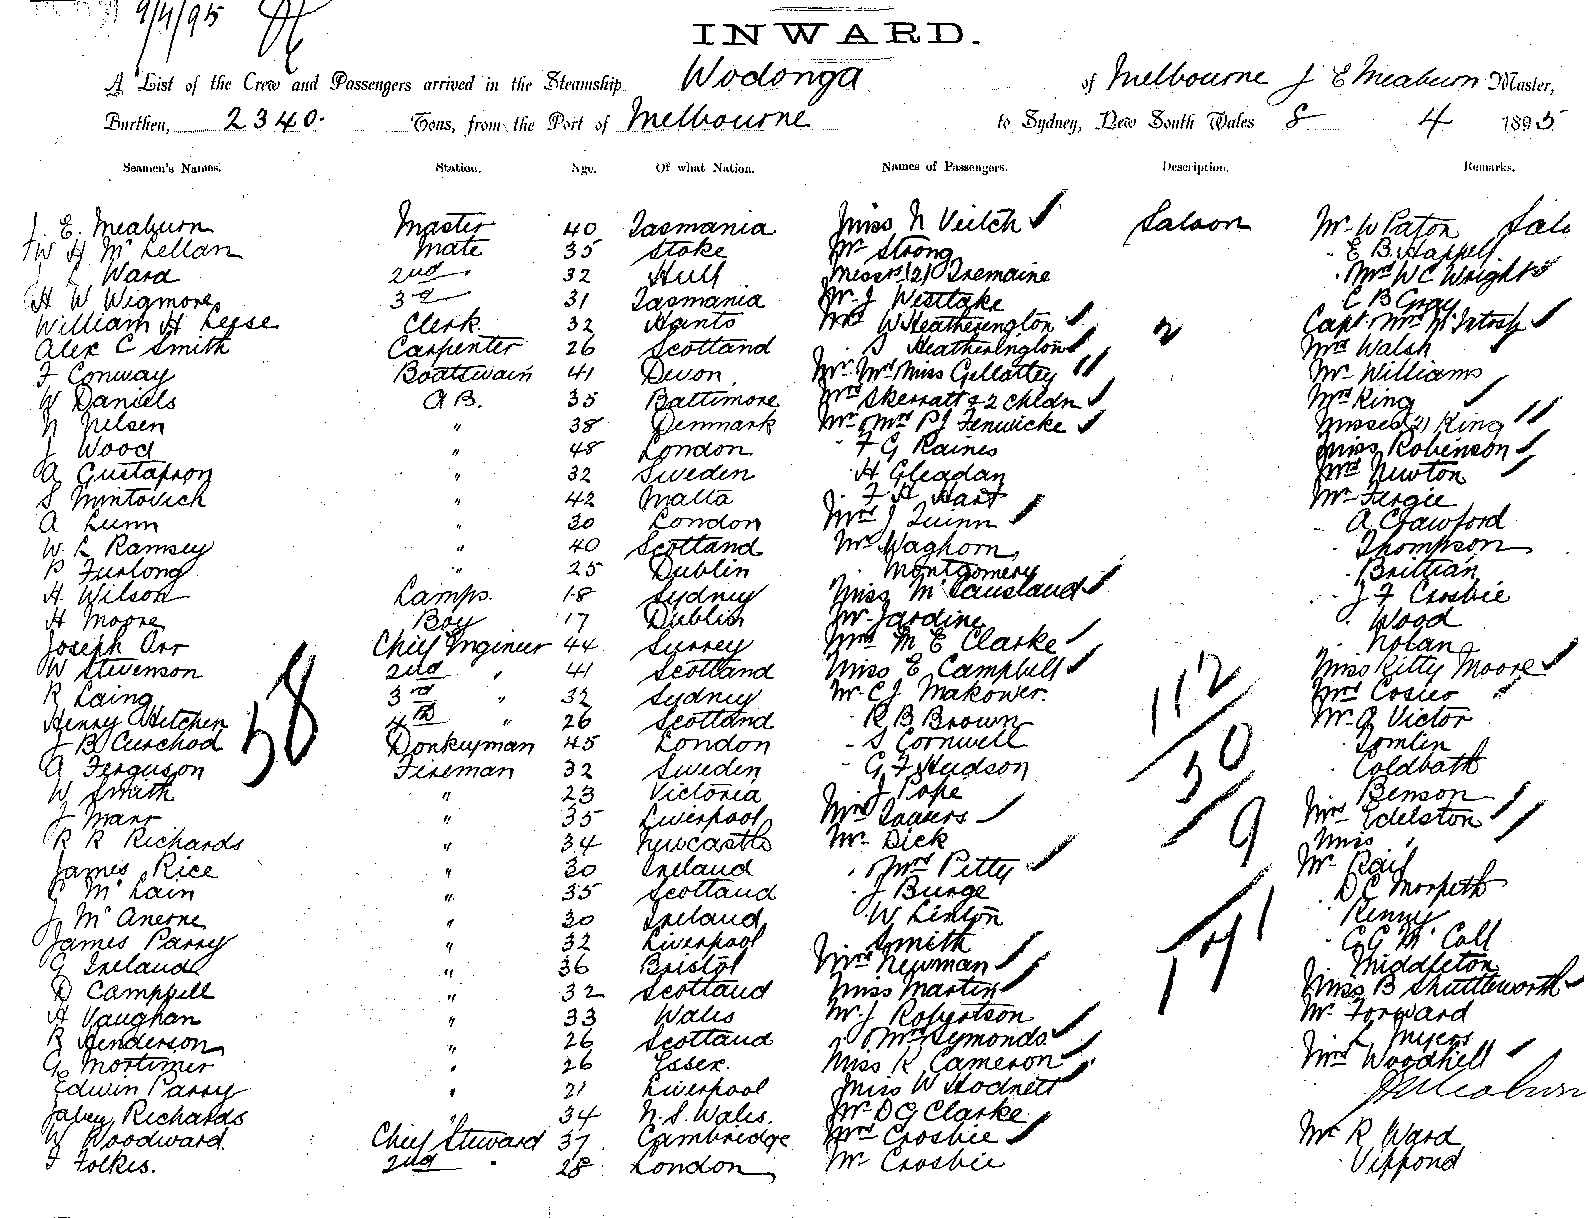 9/4/95
INWARD.
A List of the Crew and Passengers arrived in the Steamship Wodonga of Melbourne J E Meaburn Master,
Burthen, 2340. Tons, from the Port of Melbourne to Sydney, New South Wales 8 4 1895
Seamen's Names. Station. Age. Of what Nation. Names of Passengers. Description. Remarks.
J. E. Meaburn Master 40 Tasmania Miss N Veitch Saloon Mr W Paton Salo
W H McLellan Mate 35 Stoke Mr Strong E B Happell
J L Ward 2nd 32 Hull Messrs (2) Tremaine Mrs W C Wright
H W Wigmore 3rd 31 Tasmania Mr J Westlake C B Gray
William H Leese Clerk. 32 Hants Mrs W Heatherington " Capt Mrs McIntosh
Alex C Smith Carpenter 26 Scotland S Heatherington Mrs Walsh
F Conway Boatswain 41 Devon. Mr Mrs Miss Gellatley Mr Williams
W Daniels A B. 35 Baltimore Mrs Skerratt & 2 chldn Mrs King
N Nelsen " 38 Denmark Mr Mrs P J Fenwicke Misses (2) King
J Wood " 48 London F G Raines Miss Robinson
A Gustafson " 32 Sweden H Gleadan Mrs Newton
S Mintovich " 42 Malta F H Hart Mr Fergie
A Lunn " 30 London Mrs J Quinn A Crawford
W. L Ramsey " 40 Scotland Mr Waghorn Thompson
P Furlong " 25 Dublin Montgomery Brittian
H Wilson Lamps. 18 Sydney Miss McCausland J F Crosbie
H Moore Boy 17 Dublin Mr Jardine Wood
Joseph Orr Chief Engineer 44 Surrey Mrs M E Clarke Nolan
W Stevenson 2nd " 41 Scotland Miss E Campbell Miss Kitty Moore
R Laing 3rd " 32 Sydney Mr C J Makower. Mrs Cosier
Henry A Hetchen 4th " 26 Scotland R B Brown Mr A Victor
J B Curchod Donkeyman 45 London S Cornwell Tomlin
A Ferguson Fireman 32 Sweden G F Hudson Coldbath
W Smith " 23 Victoria J Pope Benson
J Marr " 35 Liverpool Mrs Mrs Edelston
R R Richards " 34 Newcastle Mr Dick Miss "
James Rice " 30 Ireland Mrs Petty Mr Rail
C McLain " 35 Scotland J Burge D C Morpeth
J McAnerne " 30 Ireland W Linton Kenny
James Parry " 32 Liverpool Smith G G McColl
G Ireland " 36 Bristol Mrs Newman Middleton
D Campbell " 32 Scotland Miss Martin Miss B Shuttleworth
H Vaughan " 33 Wales Mr J Robertson Mr Forward
R Henderson " 26 Scotland Mrs Symonds L Myers
G Mortimer " 26 Essex. Miss R Cameron Mrs Woodhill
Edwin Parry " 21 Liverpool Miss W Hodnett J E Meaburn
Jabez Richards " 34 N. S. Wales. Mr D G Clarke
W Woodward. Chief Steward 37 Cambridge Mrs Crosbie Mr R Ward
F Folkes. 2nd " 28 London Mr Crosbie Vippond
58
112
50
9
171